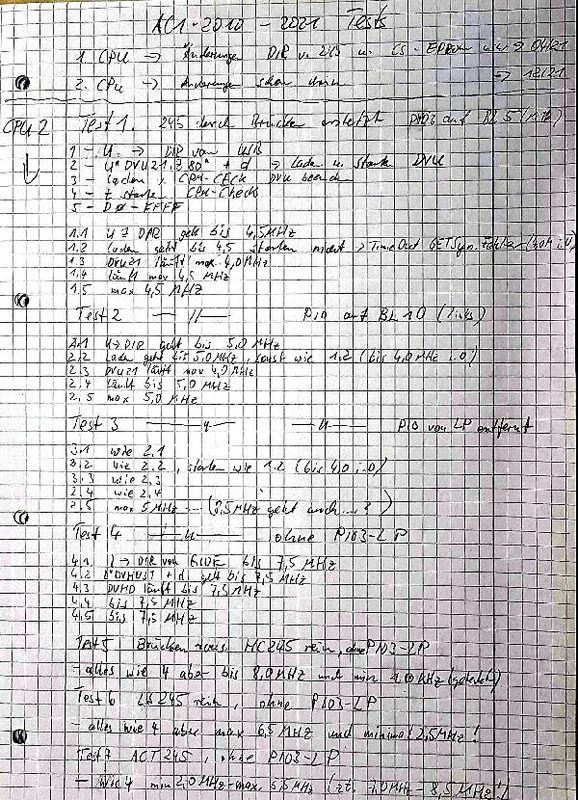 AC1-2010 - 2021 Tests
1. CPU → Änderungen DIR v. 245 u. CS-EPROM 04/21
→ 12/21
2. CPU → Änderungen schon darin
CPU 2 Test 1. 245 durch Brücken ersetzt PIO3 auf BL 5 (MHz)
1 - U → DIR von USB
2 - U" DVU21.280" + d → laden u. starte DVU
3 - laden CPM-CEck DVU
4 - starte CPM-Check
5 - D0 - FFFF
1.1 U → DIR geht bis 4,5 MHz
1.2 laden geht bis 4,5 starten nicht → TimeOut
1.3 DVU21 läuft max 4,0 MHz
1.4 läuft max 4,5 MHz
1.5 max 4,5 MHz
Test 2 — 〃 — PIO auf BL 10 (links)
2.1 U→DIR geht bis 5,0 MHz
2.2 Laden geht bis 5,0 MHz, sonst wie 1.2 (bis 4,0 MHz i.O)
2.3 DVU21 läuft max 4,0 MHz
2.4 läuft bis 5,0 MHz
2.5 max 5,0 MHz
Test 3 — 〃 — — 〃 — PIO von LP entfernt
3.1 wie 2.1
3.2 wie 2.2, starten wie 1.2 (bis 4,0 i.O)
3.3 wie 2.3
3.4 wie 2.4
3.5 max 5 MHz (7,5 MHz geht auch ...?)
Test 4 — 〃 — ohne PIO3-LP
4.1. → DIR von GIDE bis 7,5 MHz
4.2 + d geht bis 7,5 MHz
4.3 läuft bis 7,5 MHz
4.4 bis 7,5 MHz
4.5 bis 7,5 MHz
Test 5 Brücken raus HC245 rein, ohne PIO3-LP
- alles wie 4 aber bis 8,0 MHz und min (getestet)
Test 6 LS245 rein, ohne PIO3-LP
- alles wie 4 aber max 6,5 MHz und minimal 2,5 MHz!
Test 7 ACT245, ohne PIO3-LP
- wie 4 min 2,0 MHz - max. 5,5 MHz 7,0 MHz - 8,5 MHz!)